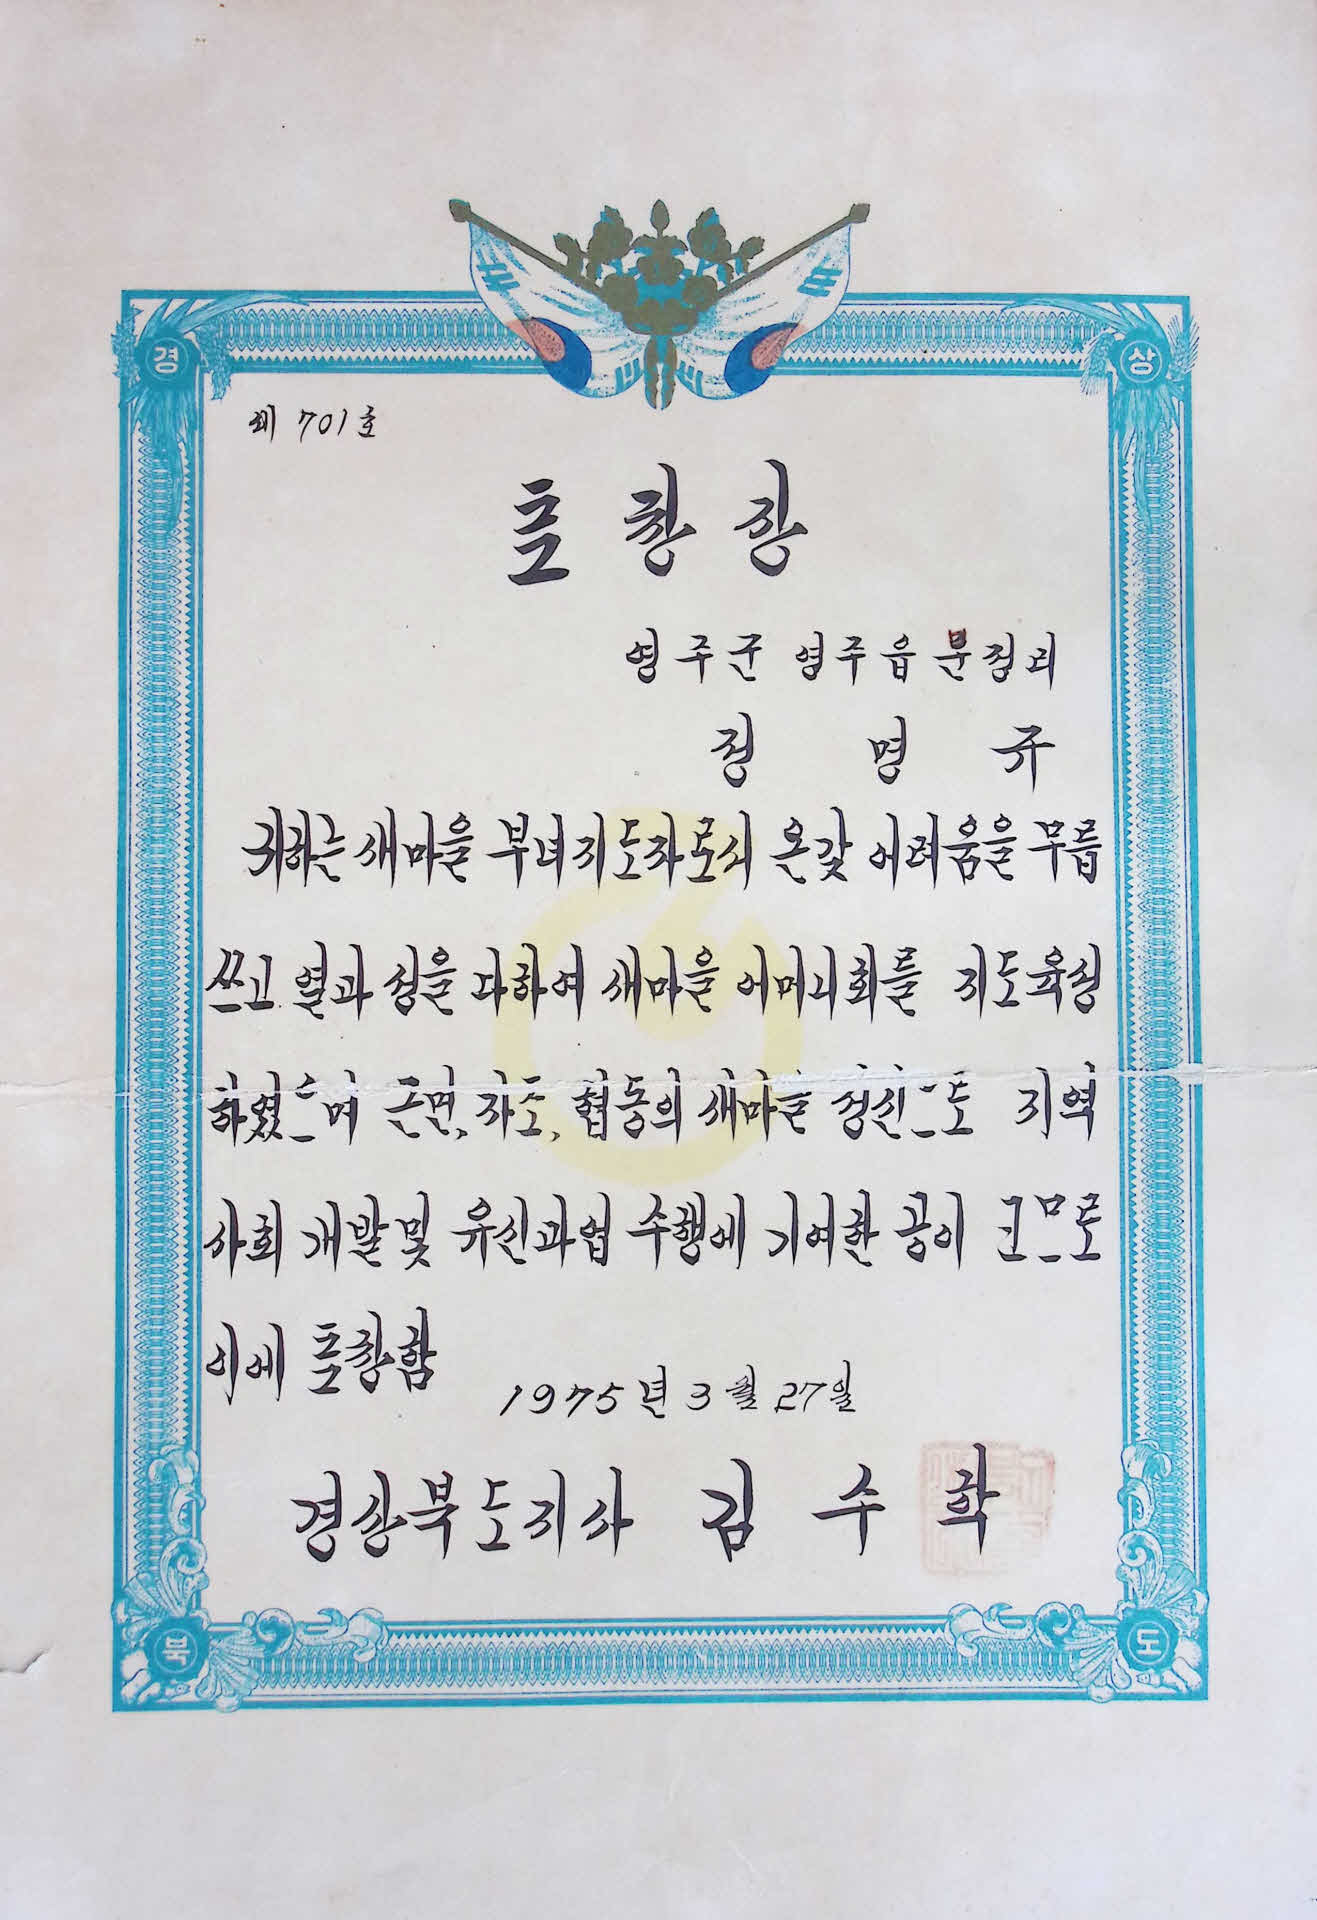 경 상
제 701호
표창장
영주군 영주읍 문정리
정명규
귀하는 새마을 부녀지도자로서 온갖 어려움을 무릅
쓰고 열과 성을 다하여 새마을 어머니회를 지도육성
하였으며 근면, 자조, 협동의 새마을 정신으로 지역
사회 개발 및 유신과업 수행에 기여한 공이 크므로
이에 표창함
1975년 3월 27일
경상북도지사 김수학
북 도